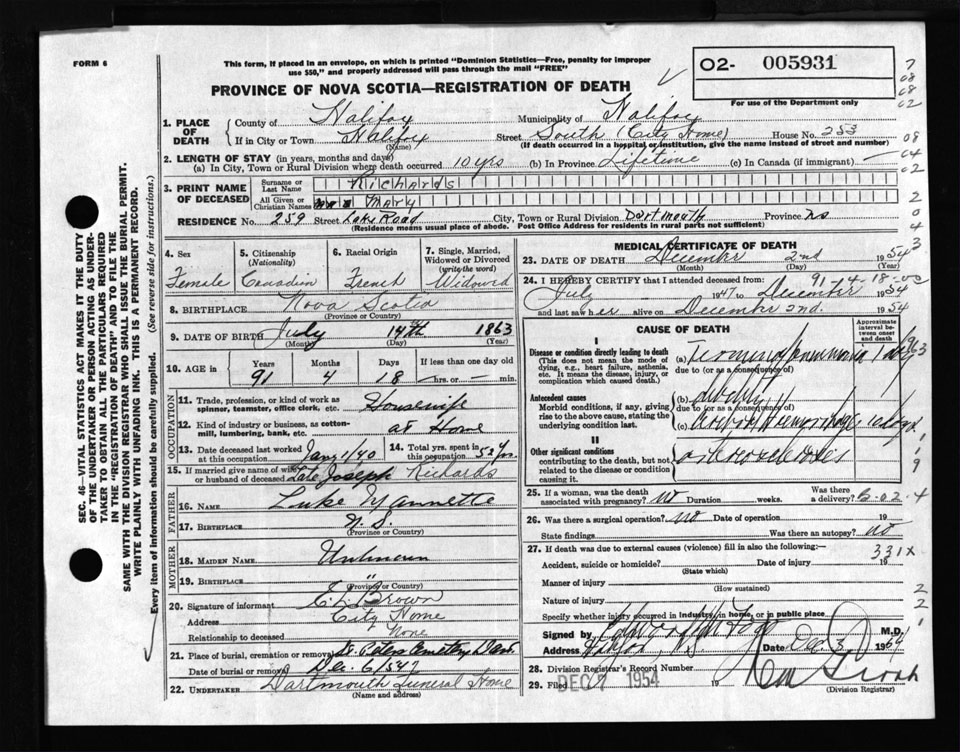 FORM 6
This form, if placed in an envelope, on which is printed "Dominion Statistics—Free, penalty for improper
use $50," and properly addressed will pass through the mail "FREE"
O2- 005931
For use of the Department only
PROVINCE OF NOVA SCOTIA—REGISTRATION OF DEATH
1. PLACE OF DEATH
County of Halifax Municipality of Halifax
If in City or Town Halifax Street South (City Home) House No. 253
(Name) (If death occurred in a hospital or institution, give the name instead of street and number)
2. LENGTH OF STAY (in years, months and days)
(a) In City, Town or Rural Division where death occurred 10 yrs (b) In Province Lifetime (c) In Canada (if immigrant) —
3. PRINT NAME OF DECEASED
Surname or Last Name Richards
All Given or Christian Names Mary
RESIDENCE No. 259 Street Lake Road City, Town or Rural Division Dartmouth Province NS
(Residence means usual place of abode. Post Office Address for residents in rural parts not sufficient)
4. Sex Female
5. Citizenship (Nationality) Canadian
6. Racial Origin French
7. Single, Married, Widowed or Divorced (write the word) Widowed
8. BIRTHPLACE Nova Scotia
(Province or Country)
9. DATE OF BIRTH July 14th 1863
(Month) (Day) (Year)
10. AGE in Years 91 Months 4 Days 18 If less than one day old
hrs. or min.
OCCUPATION
11. Trade, profession, or kind of work as spinner, teamster, office clerk, etc. Housewife
12. Kind of industry or business, as cotton-mill, lumbering, bank, etc. at Home
13. Date deceased last worked at this occupation Jany 1/40
14. Total yrs. spent in this occupation 52 yrs
15. If married give name of wife or husband of deceased Late Joseph Richards
FATHER
16. NAME Luke Mannette
17. BIRTHPLACE N.S.
(Province or Country)
MOTHER
18. MAIDEN NAME Unknown
19. BIRTHPLACE "
(Province or Country)
20. Signature of informant E. L. Brown
Address City Home
Relationship to deceased None
21. Place of burial, cremation or removal St. Peters Cemetery Dart.
Date of burial or removal Dec. 6/54
22. UNDERTAKER Dartmouth Funeral Home
(Name and address)
MEDICAL CERTIFICATE OF DEATH
23. DATE OF DEATH December 2nd 1954
(Month) (Day) (Year)
91 4 18 00
24. I HEREBY CERTIFY that I attended deceased from:
July 1947 to December 1954
and last saw her alive on December 2nd. 1954
CAUSE OF DEATH
Approximate interval between onset and death
I
Disease or condition directly leading to death
(This does not mean the mode of dying, e.g., heart failure, asthenia, etc. It means the disease, injury, or complication which caused death.)
(a) Terminal pneumonia
due to (or as a consequence of)
Antecedent causes
Morbid conditions, if any, giving rise to the above cause, stating the underlying condition last.
(b) debility
due to (or as a consequence of)
(c) Hemorrhage
II
Other significant conditions
contributing to the death, but not related to the disease or condition causing it.
arteriosclerosis
25. If a woman, was the death associated with pregnancy? No Duration weeks. Was there a delivery?
26. Was there a surgical operation? No Date of operation 19
State findings Was there an autopsy? no
27. If death was due to external causes (violence) fill in also the following:—
331X
Accident, suicide or homicide? Date of injury 19
(State which)
Manner of injury
(How sustained)
Nature of injury
Specify whether injury occurred in industry, in home, or in public place
Signed by M.D.
Address Halifax, N.S. Date Dec. 3 1954
28. Division Registrar's Record Number
29. Filed DEC 7 1954 19
(Division Registrar)
SEC. 46—VITAL STATISTICS ACT MAKES IT THE DUTY
OF THE UNDERTAKER OR PERSON ACTING AS UNDER-
TAKER TO OBTAIN ALL THE PARTICULARS REQUIRED
IN THE "REGISTRATION OF DEATH" AND TO FILE THE
SAME WITH THE DIVISION REGISTRAR WHO SHALL ISSUE THE BURIAL PERMIT.
WRITE PLAINLY WITH UNFADING INK. THIS IS A PERMANENT RECORD.
Every item of information should be carefully supplied. (See reverse side for instructions.)